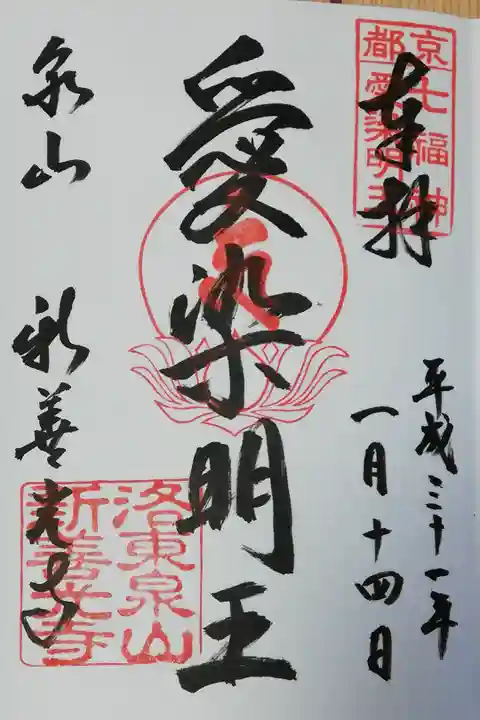 奉拝
京
都七福神
愛染明王
平成三十一年
一月十四日
愛染明王
泉山
新善光寺
洛東泉山
新善光寺